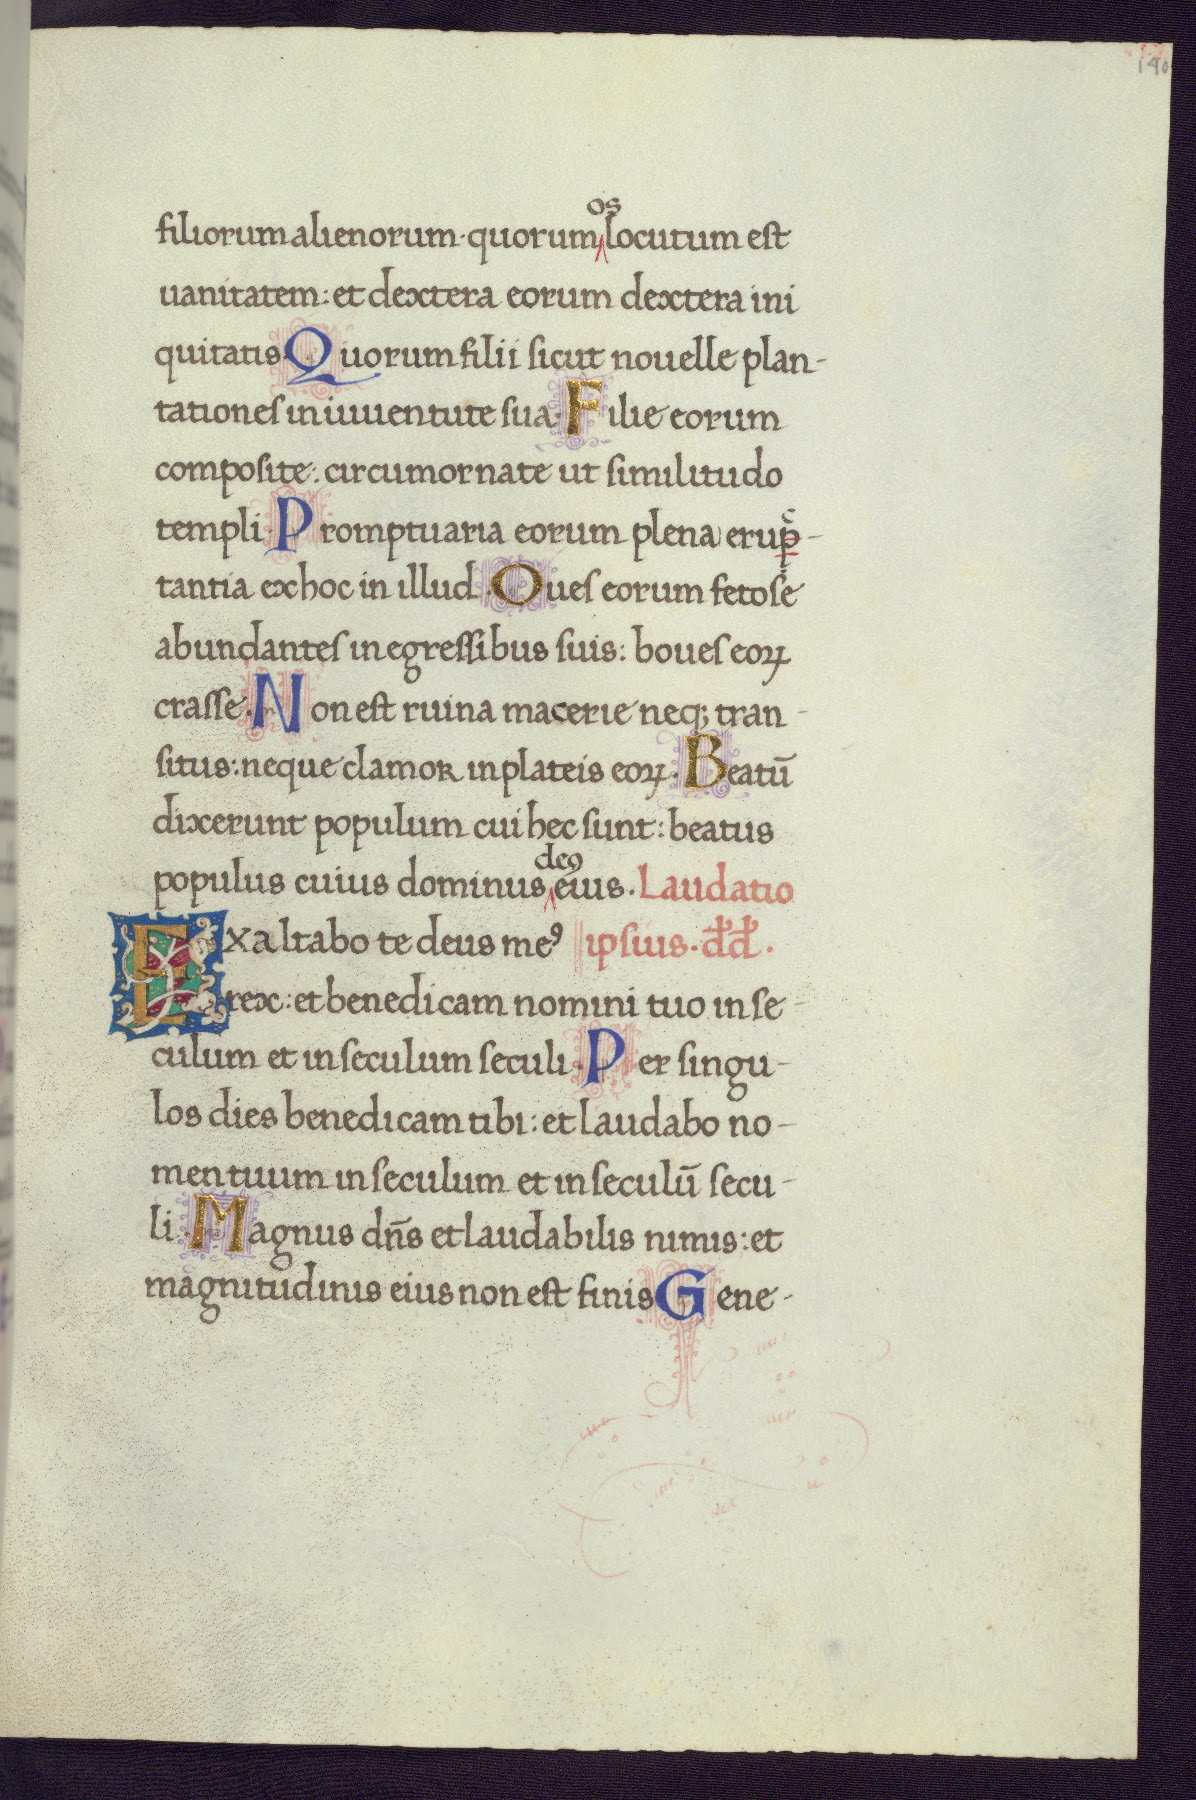 140
filiorum alienorum · quorum os locutum est
uanitatem : et dextera eorum dextera ini
quitatis · Quorum filii sicut nouelle plan-
tationes in iuuentute sua · Filie eorum
composite : circumornate ut similitudo
templi · Promptuaria eorum plena erup̶c-
tantia ex hoc in illud · Oues eorum fetose
abundantes in egressibus suis : boues eoꝝ
crasse · Non est ruina macerie neqꝫ tran-
situs : neque clamor in plateis eoꝝ · Beatū
dixerunt populum cui hec sunt : beatus
populus cuius dominus deꝰ eius . Laudatio
Exaltabo te deus meꝰ ipsius . dd̄ .
rex : et benedicam nomini tuo in se-
culum et in seculum seculi · Per singu-
los dies benedicam tibi : et laudabo no-
men tuum in seculum et in seculū secu-
li · Magnus dn̄s et laudabilis nimis : et
magnitudinis eius non est finis Gene-